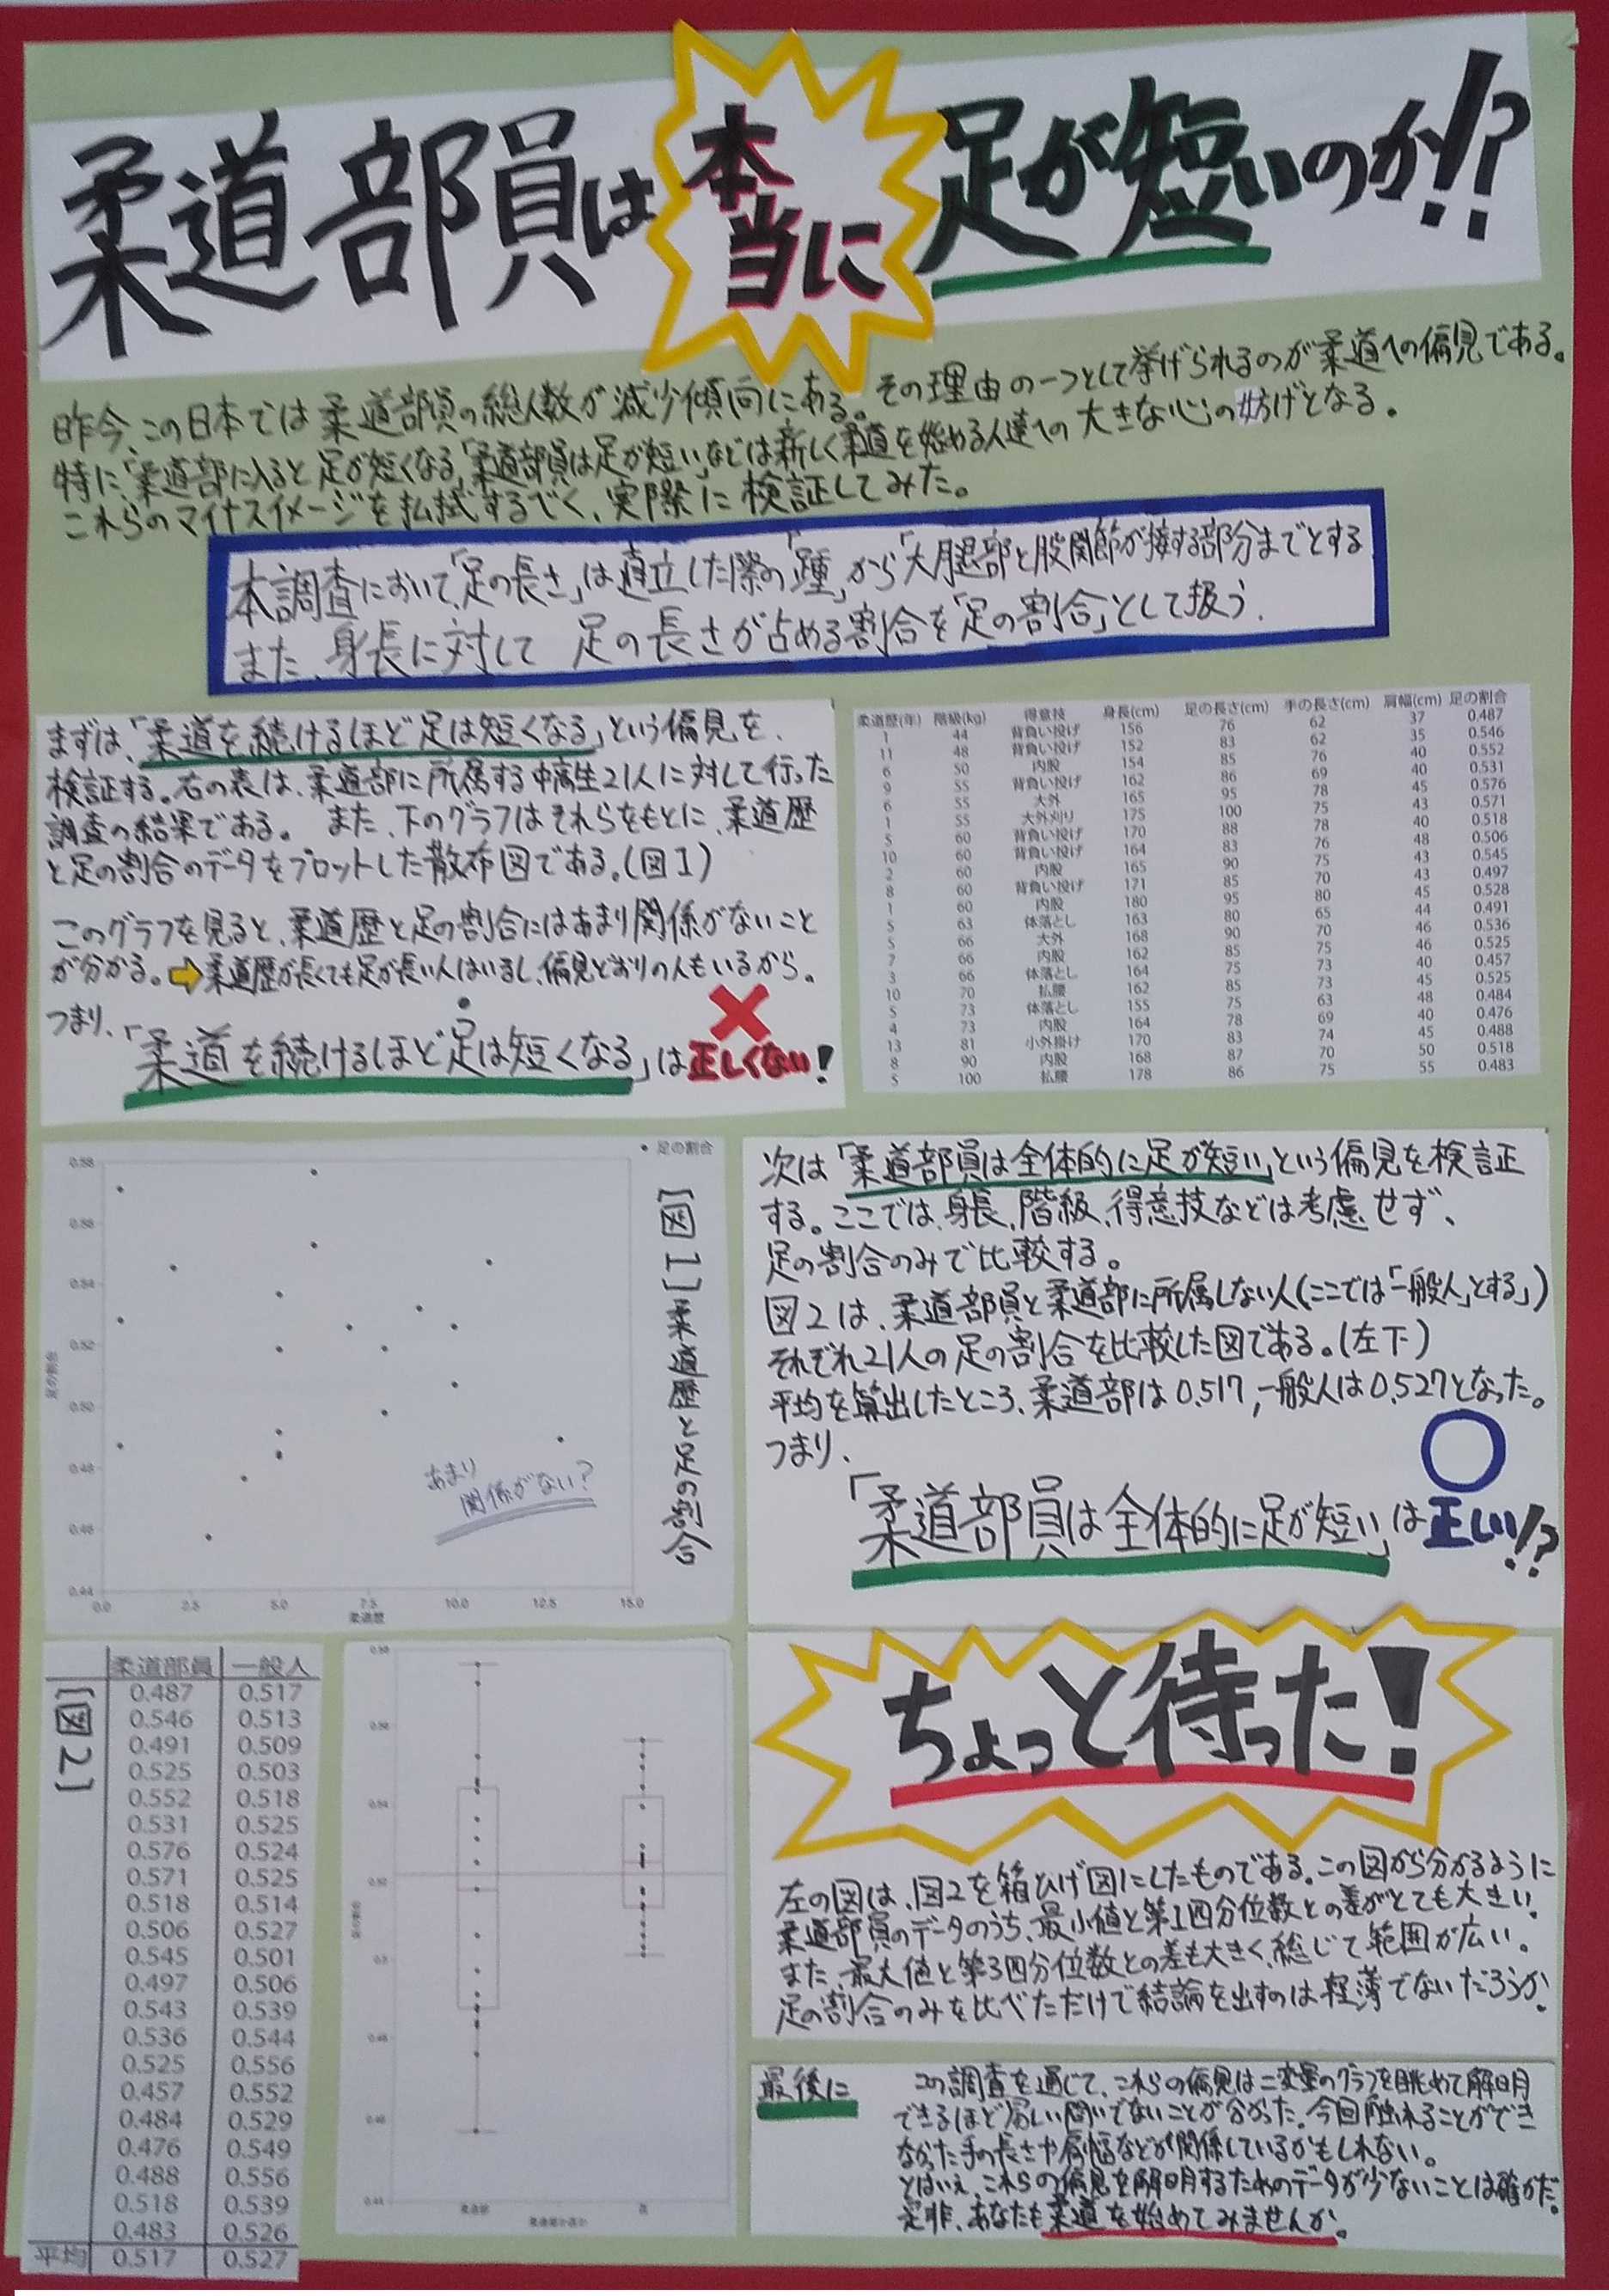 柔道部員は本当に足が短いのか!?
昨今、この日本では柔道部員の総人数が減少傾向にある。その理由の一つとして挙げられるのが柔道への偏見である。
特に、「柔道部に入ると足が短くなる」「柔道部員は足が短い」などは新しく柔道を始める人達への大きな心の妨げとなる。
これらのマイナスイメージを払拭するべく、実際に検証してみた。
本調査において、「足の長さ」は直立した際の「踵」から「大腿部と股関節が接する部分までとする
また、身長に対して 足の長さが占める割合を「足の割合」として扱う.
まずは、「柔道を続けるほど足は短くなる」という偏見を、
検証する。右の表は、柔道部に所属する中高生21人に対して行った
調査の結果である。 また、下のグラフはそれらをもとに、柔道歴
と足の割合のデータをプロットした散布図である。(図1)
このグラフを見ると、柔道歴と足の割合にはあまり関係がないこと
が分かる。⇨柔道歴が長くても足が長い人はいるし、偏見どおりの人もいるから。
つまり、
「柔道を続けるほど足は短くなる」は正しくない!
柔道歴(年) 階級(kg) 得意技 身長(cm) 足の長さ(cm) 手の長さ(cm) 肩幅(cm) 足の割合
1 44 背負い投げ 156 76 62 37 0.487
11 48 背負い投げ 152 83 62 35 0.546
6 50 内股 154 85 76 40 0.552
9 55 背負い投げ 162 86 69 40 0.531
6 55 大外 165 95 78 45 0.576
1 55 大外刈り 175 100 75 43 0.571
5 60 背負い投げ 170 88 78 40 0.518
10 60 背負い投げ 164 83 76 48 0.506
2 60 内股 165 90 75 43 0.545
8 60 背負い投げ 171 85 70 43 0.497
1 60 内股 180 95 80 45 0.528
5 63 体落とし 163 80 65 44 0.491
5 66 大外 168 90 70 46 0.536
7 66 内股 162 85 75 46 0.525
3 66 体落とし 164 75 73 40 0.457
10 70 払腰 162 85 73 45 0.525
5 73 体落とし 155 75 63 48 0.484
4 73 内股 164 78 69 40 0.476
13 81 小外掛け 170 83 74 45 0.488
8 90 内股 168 87 70 50 0.518
5 100 払腰 178 86 75 55 0.483
• 足の割合
0.58
0.56
0.54
0.52
0.50
0.48
0.46
0.44
足の割合
0.0 2.5 5.0 7.5 10.0 12.5 15.0
柔道歴
あまり
関係がない?
[図1]柔道歴と足の割合
次は「柔道部員は全体的に足が短い」という偏見を検証
する。ここでは、身長、階級、得意技などは考慮せず、
足の割合のみで比較する。
図2は、柔道部員と柔道部に所属しない人(ここでは「一般人」とする」)
それぞれ21人の足の割合を比較した図である。(左下)
平均を算出したところ、柔道部は0.517, 一般人は0.527となった。
つまり、
「柔道部員は全体的に足が短い」は正しい!?
[図2]
柔道部員 一般人
0.487 0.517
0.546 0.513
0.491 0.509
0.525 0.503
0.552 0.518
0.531 0.525
0.576 0.524
0.571 0.525
0.518 0.514
0.506 0.527
0.545 0.501
0.497 0.506
0.543 0.539
0.536 0.544
0.525 0.556
0.457 0.552
0.484 0.529
0.476 0.549
0.488 0.556
0.518 0.539
0.483 0.526
平均 0.517 0.527
ちょっと待った!
左の図は、図2を箱ひげ図にしたものである。この図から分かるように
柔道部員のデータのうち、最小値と第1四分位数との差がとても大きい。
また、最大値と第3四分位数との差も大きく、総じて範囲が広い。
足の割合のみを比べただけで結論を出すのは軽薄でないだろうか.
最後に
この調査を通じて、これらの偏見は二変量のグラフを眺めて解明
できるほど易しい問いでないことが分かった。今回触れることができ
なかった手の長さや肩幅などが関係しているかもしれない。
とはいえ、これらの偏見を解明するためのデータが少ないことは確かだ。
是非、あなたも柔道を始めてみませんか。